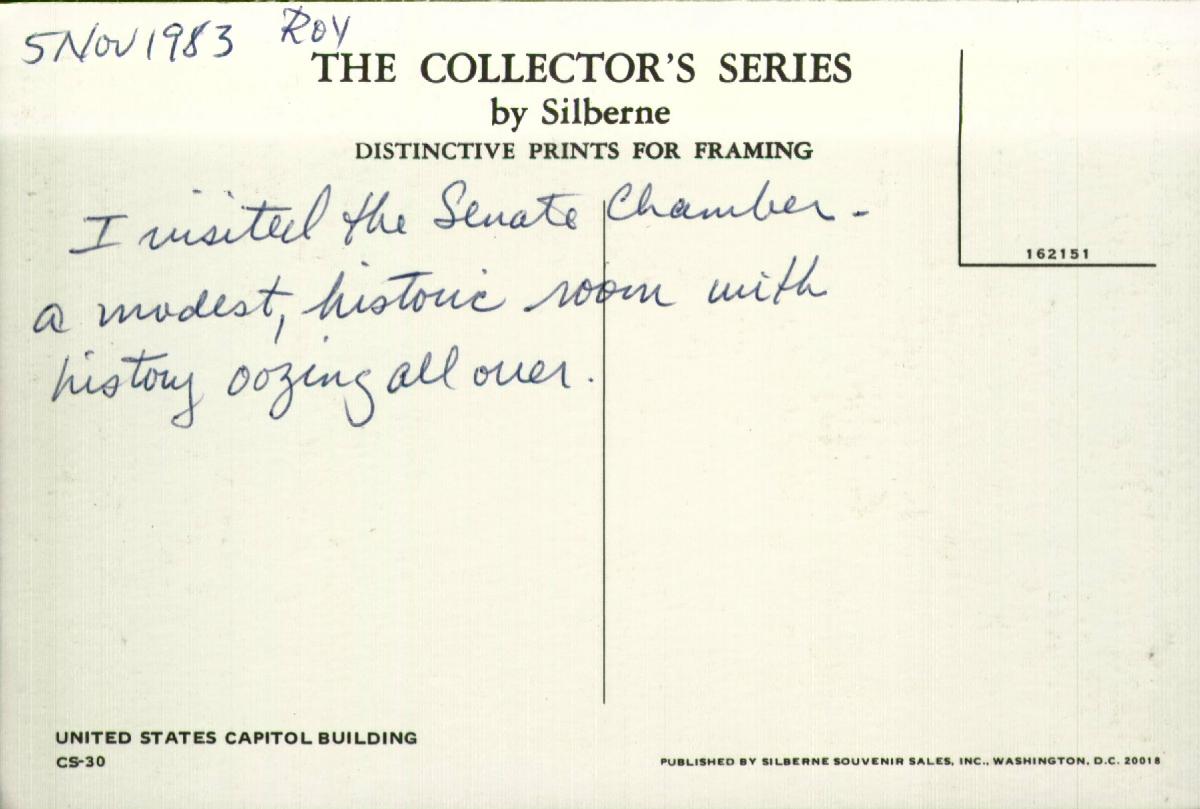 5 Nov 1983 Roy
THE COLLECTOR'S SERIES
by Silberne
DISTINCTIVE PRINTS FOR FRAMING
I visited the Senate Chamber -
a modest, historic room with
history oozing all over.
162151
UNITED STATES CAPITOL BUILDING
CS-30
PUBLISHED BY SILBERNE SOUVENIR SALES, INC., WASHINGTON, D.C. 20018